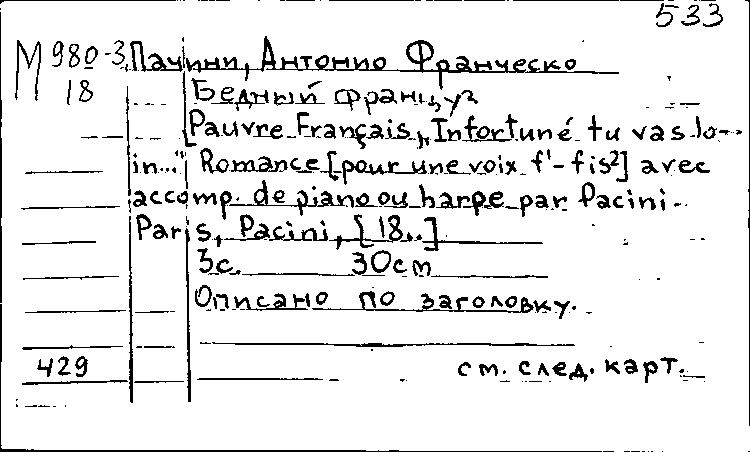 533
М 980-3 Пачини, Антонио Франческо
18 Бедный француз
[Pauvre Français, "Infortuné tu vas lo-
in..." Romance [pour une voix f'-fis²] avec
accomp. de piano ou harpe par Pacini.
Paris, Pacini, [18..]
3с. 30см
Описано по заголовку.
429 см. след. карт.